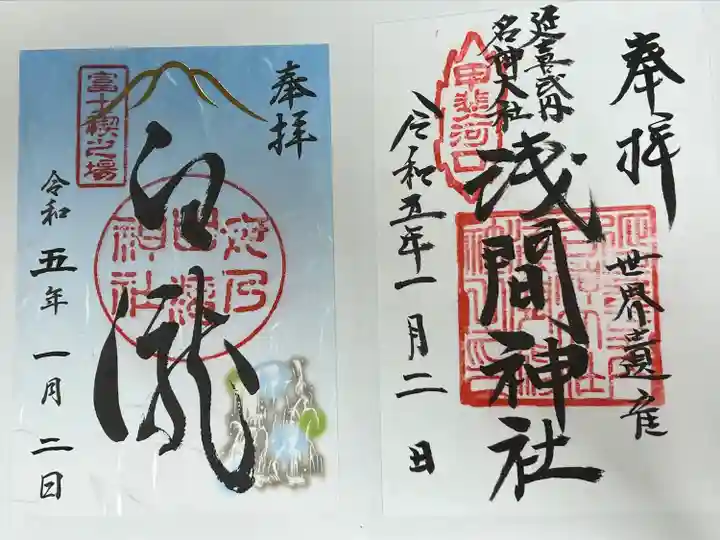 奉拝
富士禊之場
白瀧
母の白滝神社
令和五年一月二日
奉拝
世界遺産
延喜式内
名神大社
甲斐河口
浅間神社
令和五年一月二日